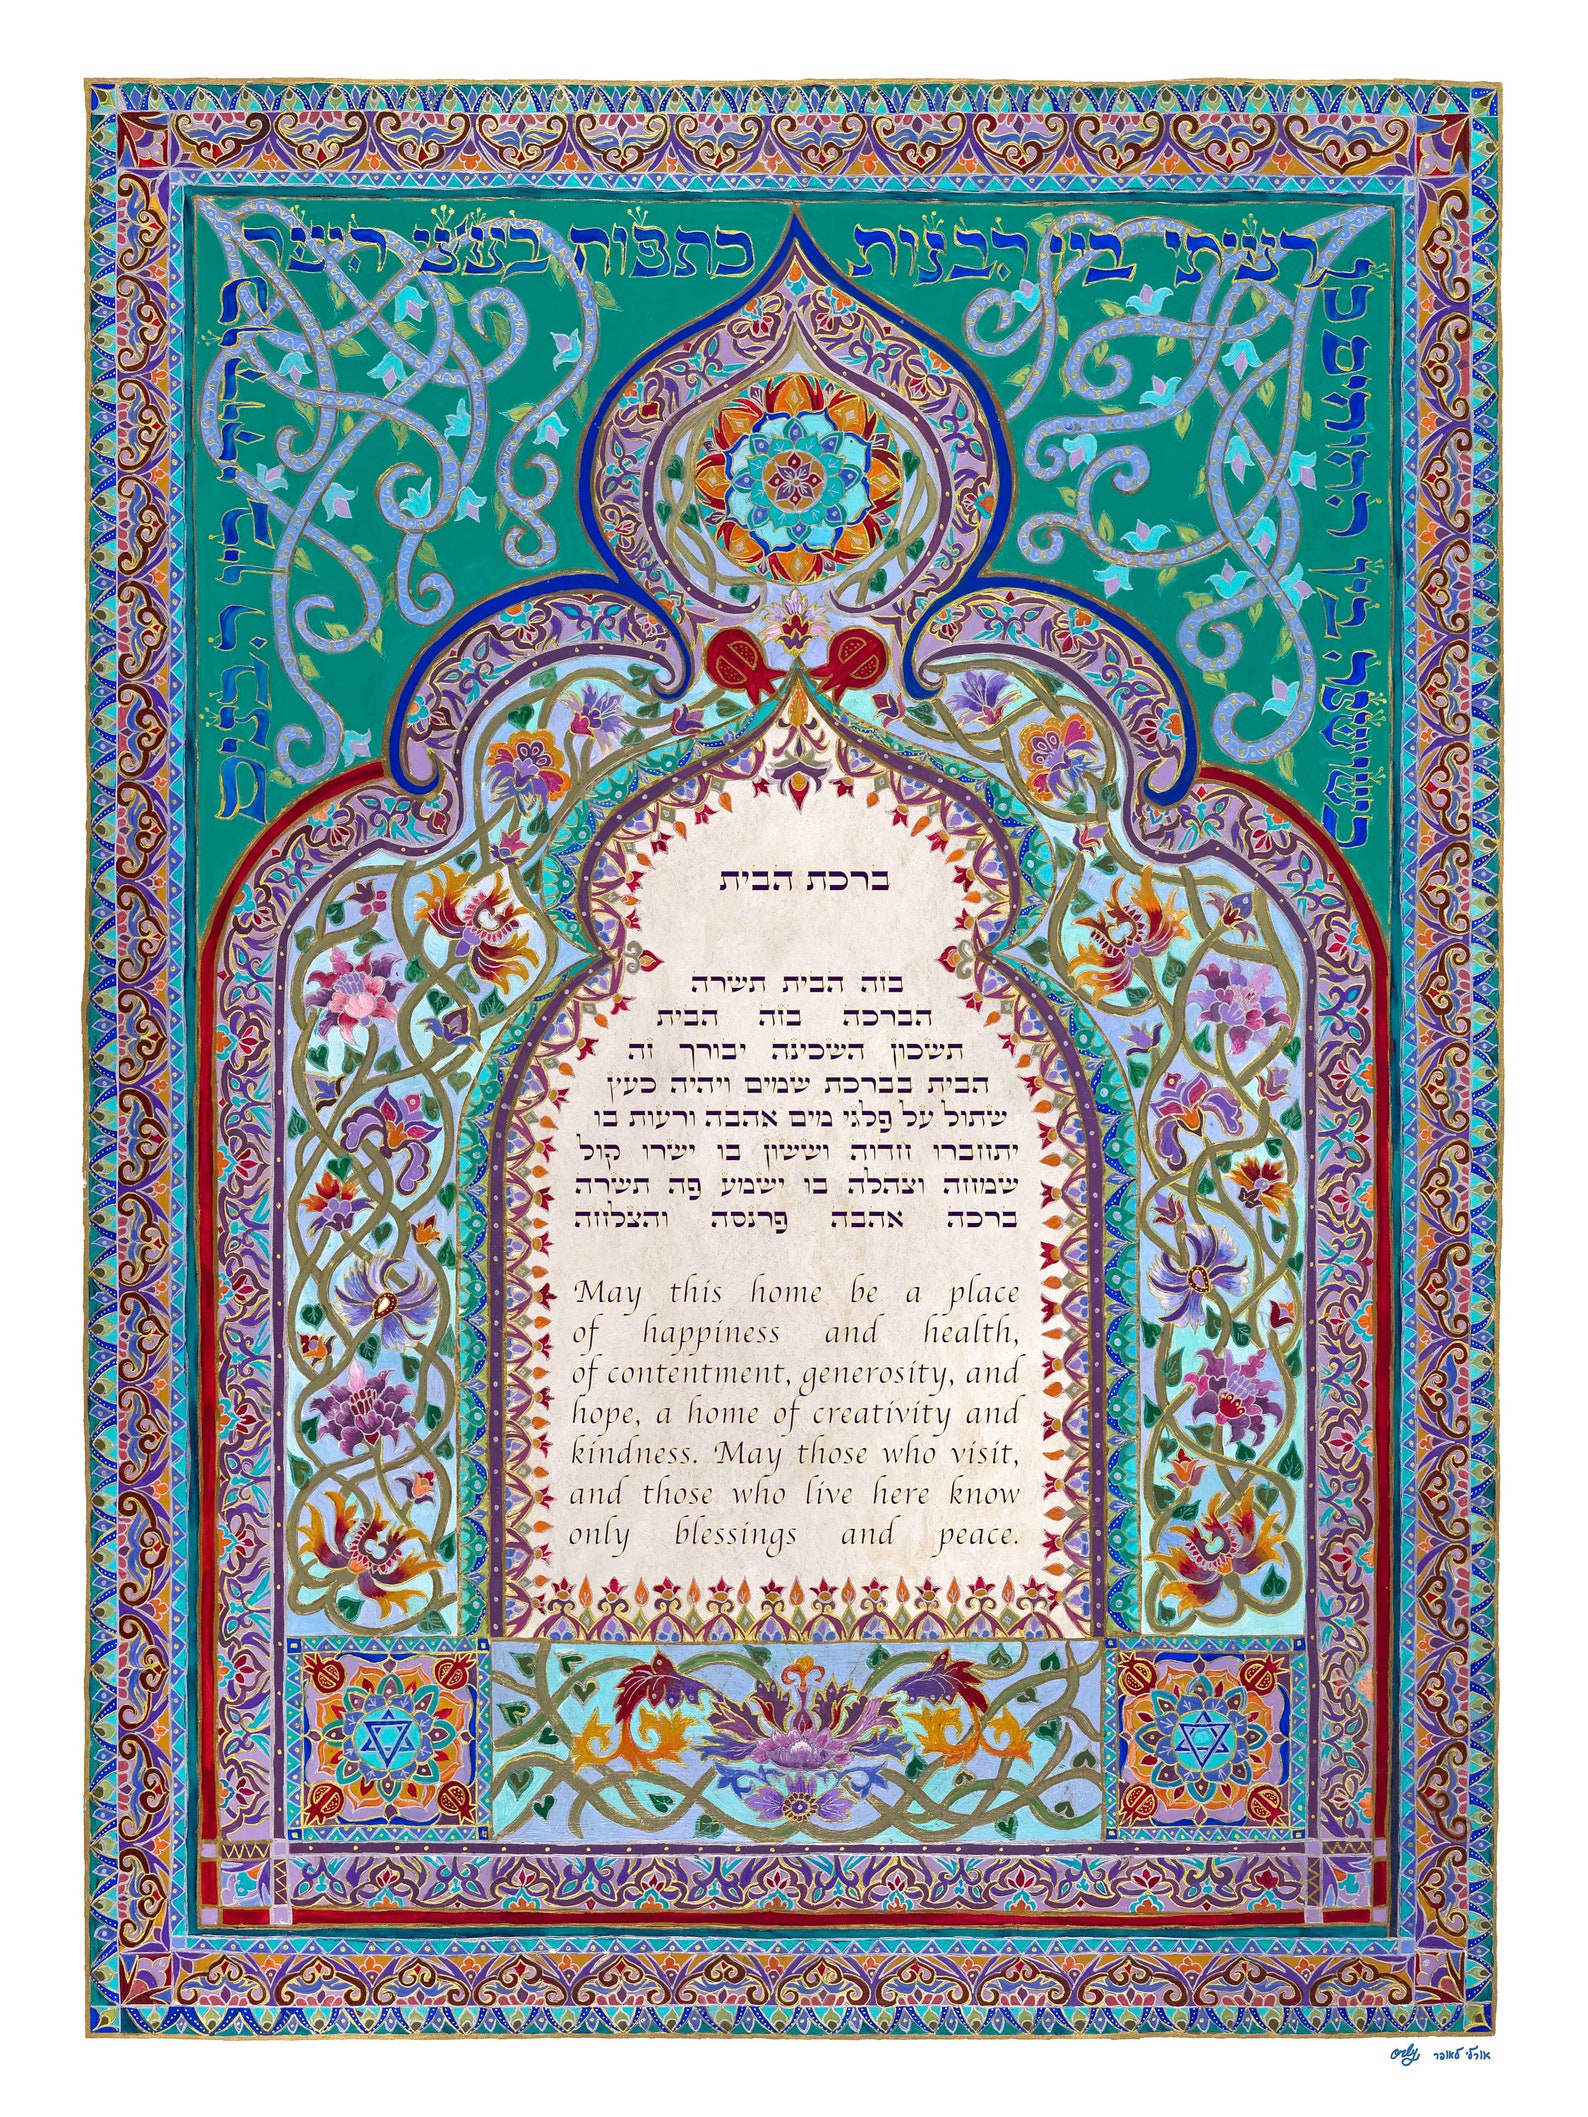 כשושנה בין החוחים כן
רעיתי בין הבנות כתפוח בעצי היער
כן דודי בין הבנים
ברכת הבית
בזה הבית תשרה
הברכה בזה הבית
תשכון השכינה יבורך זה
הבית בברכת שמים ויהיה כעץ
שתול על פלגי מים אהבה ורעות בו
יתחברו חדוה וששון בו ישרו קול
שמחה וצהלה בו ישמע פה תשרה
ברכה אהבה פרנסה והצלחה
May this home be a place
of happiness and health,
of contentment, generosity, and
hope, a home of creativity and
kindness. May those who visit,
and those who live here know
only blessings and peace.
orly אורלי לאופר